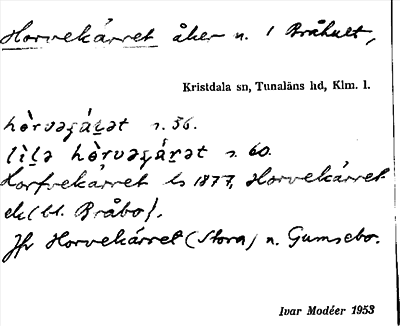 Horvekärret åker n. i Bråhult,
Kristdala sn, Tunaläns hd, Klm. l.
hòrvəɟáʀət s. 56.
lìlə hòrvəɟáʀət s. 60.
Horfvekärret ls 1877, Horvekärret
ek (bl. Bråbo).
Jfr Horvekärret (Stora) n. Gumsebo.
Ivar Modéer 1953